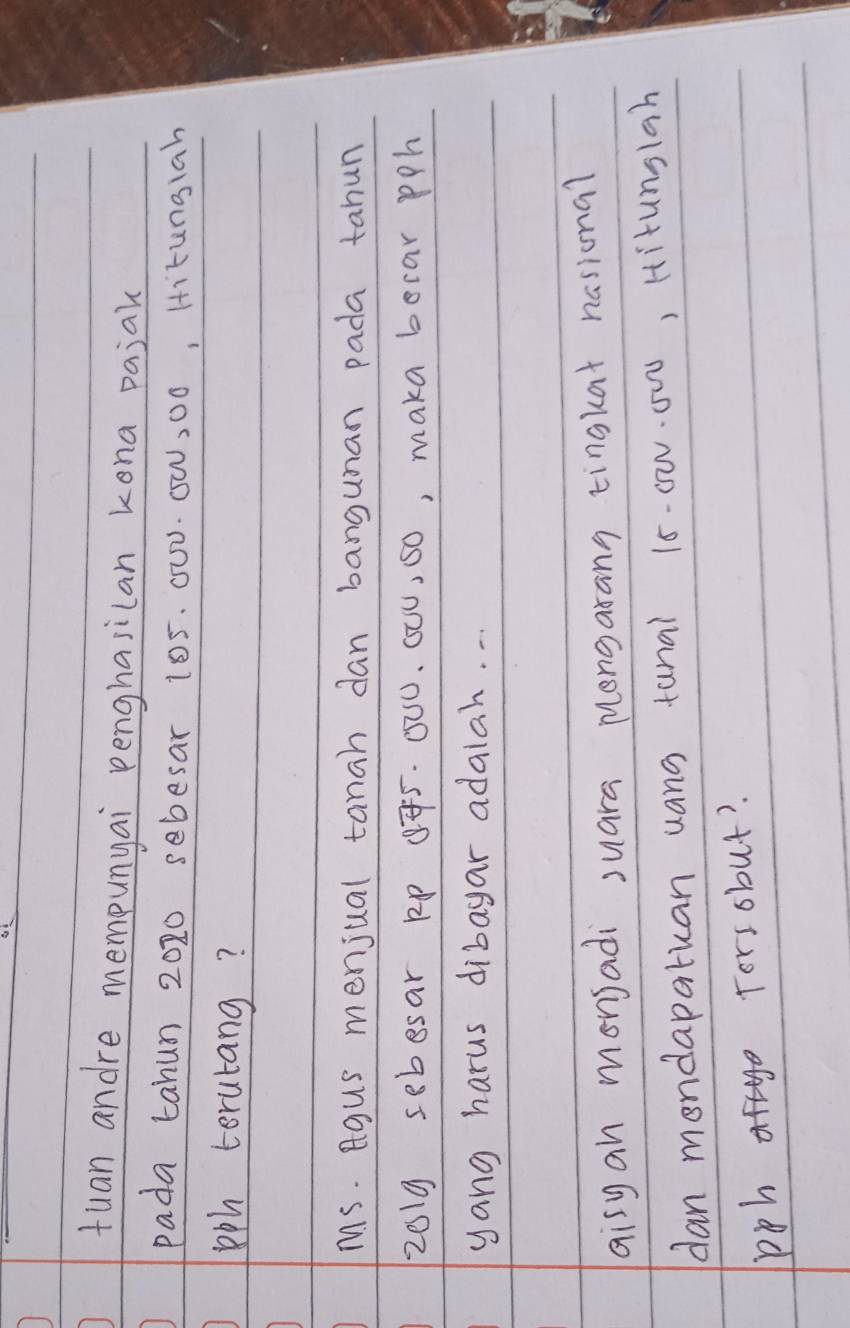 tuan andre mempunyai penghasilan kena pajak
pada tahun 2020 sebesar 105.000.000,00, Hitunglah
pph terutang?
Ms. Agus menjual tanah dan bangunan pada tahun
2019 sebesar Rp 875.000.000,00, maka besar pph
yang harus dibayar adalah...
aisyah menjadi juara mengarang tingkat nasional
dan mendapatkan uang tunai 15.000.000, Hitunglah
pph Tersebut?